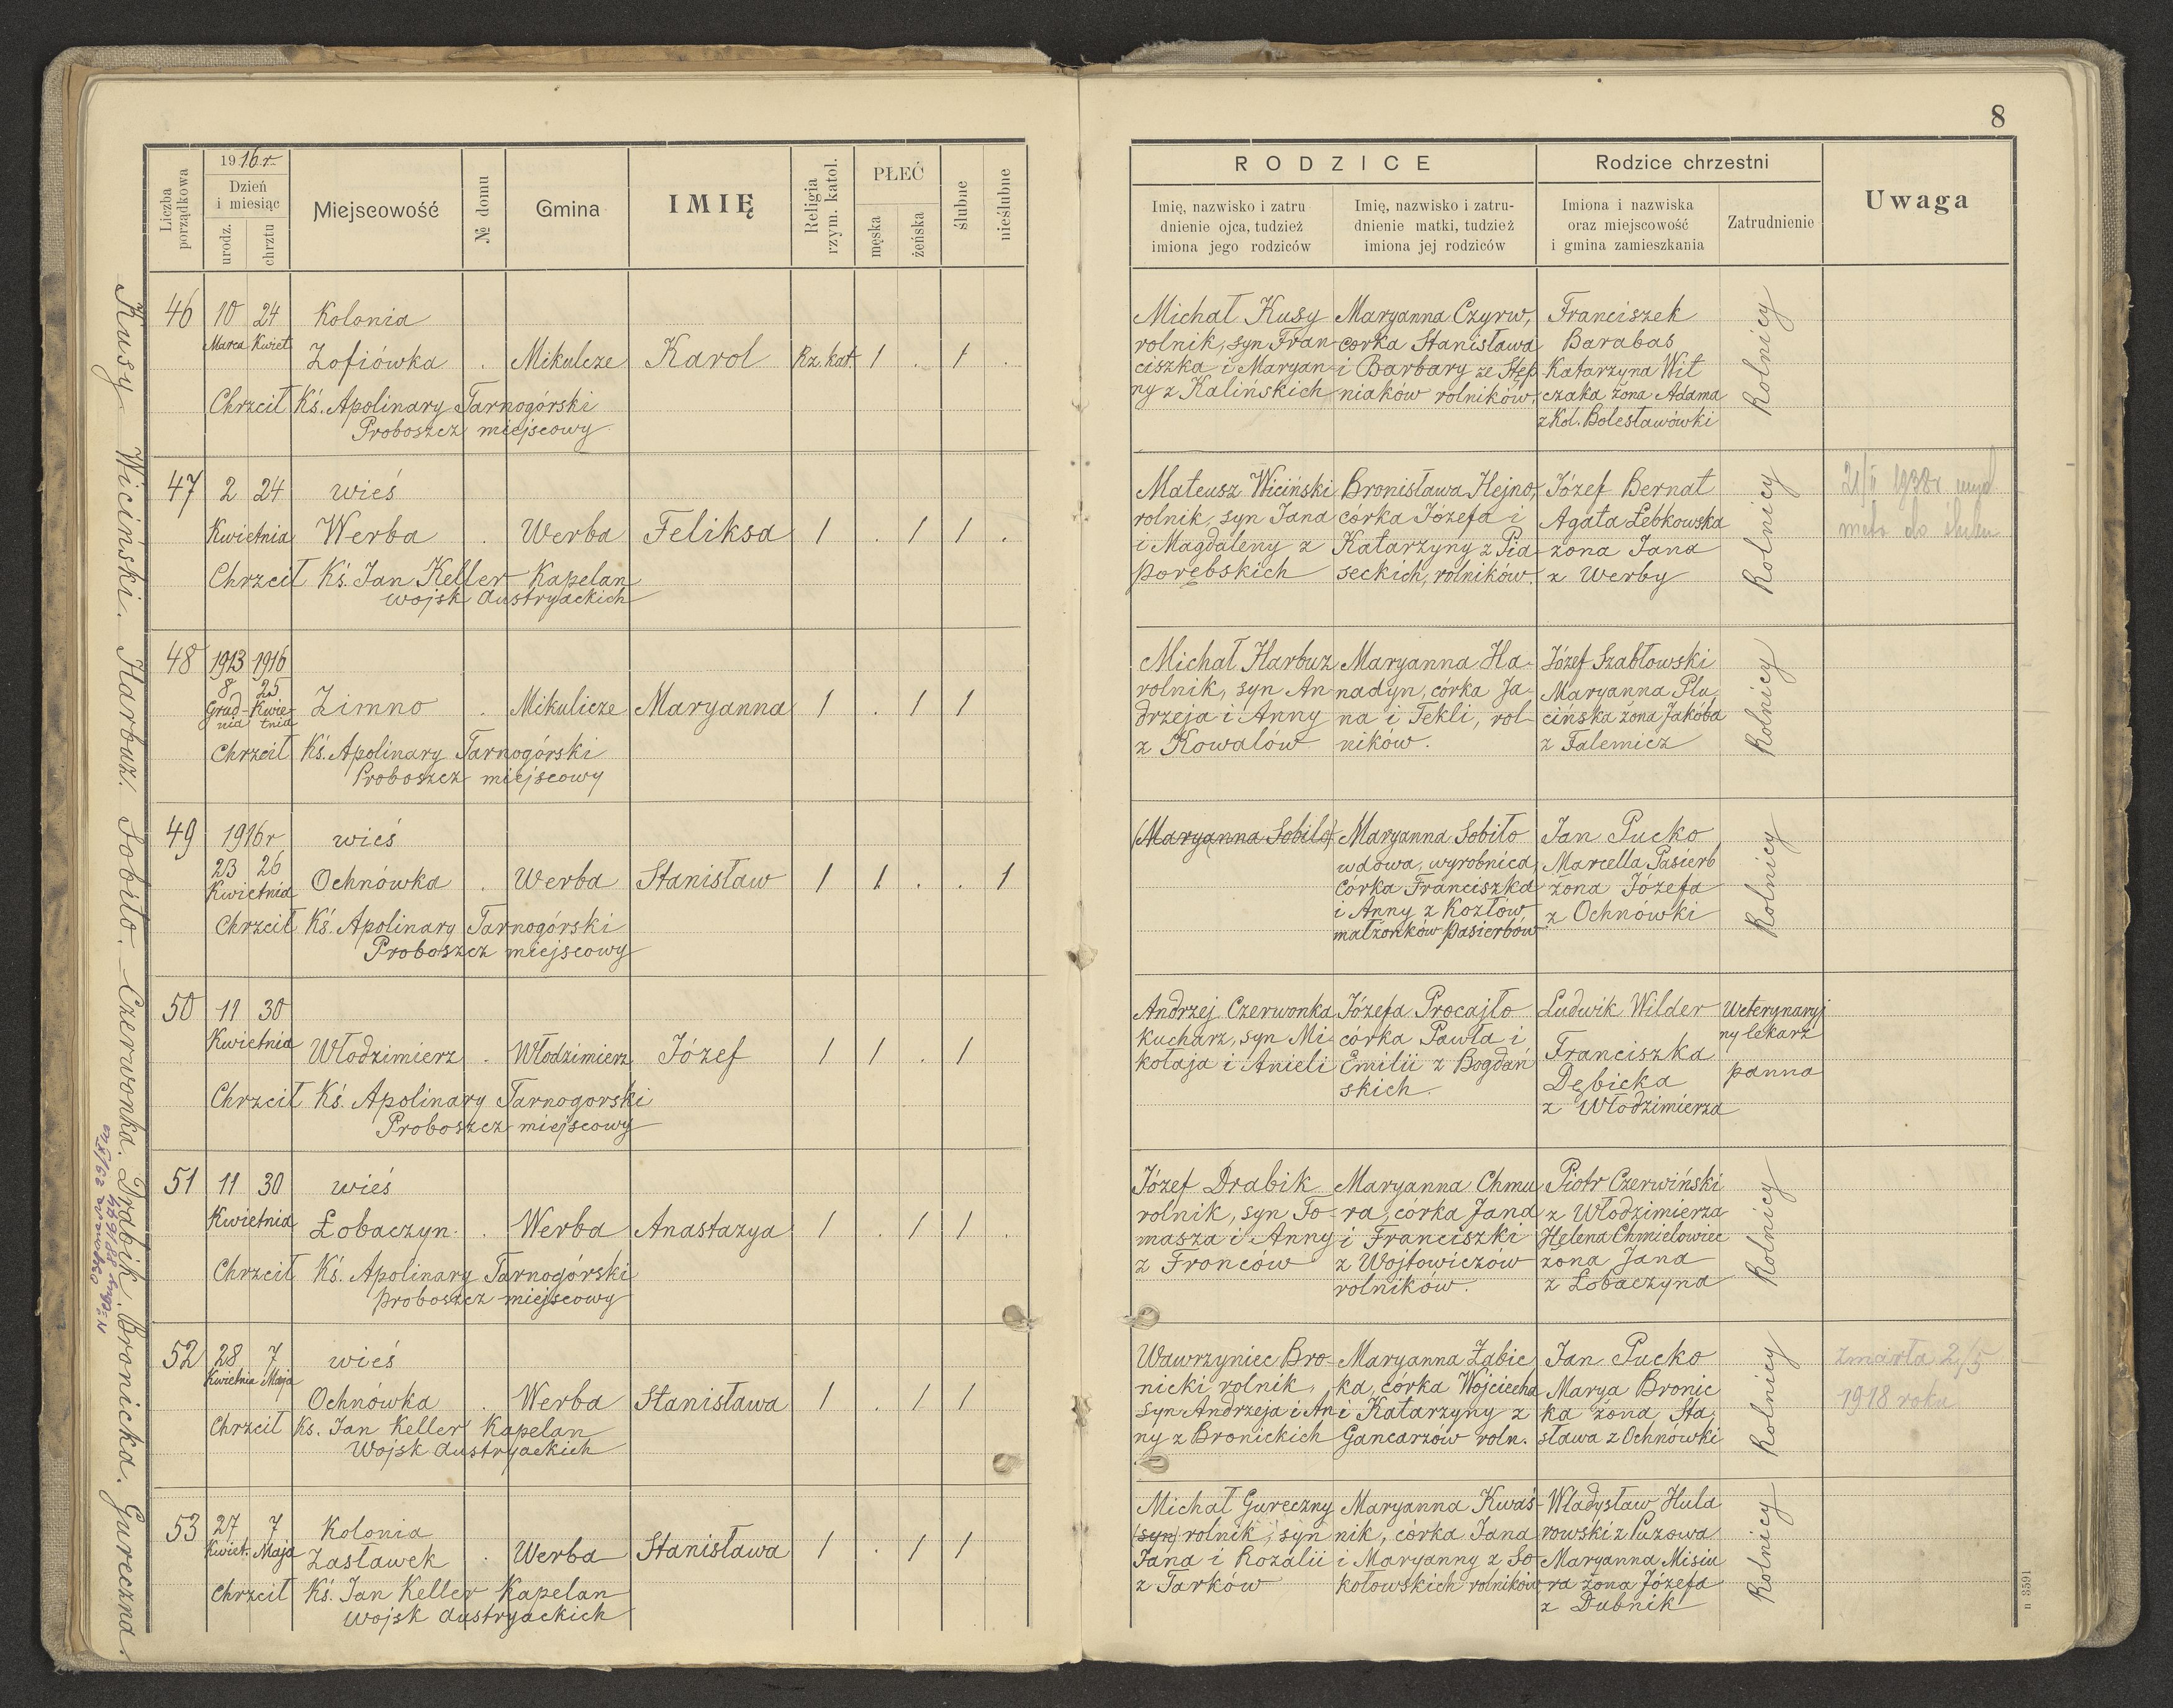 8
Liczba porządkowa
1916 r
Dzień i miesiąc
urodz.
chrztu
Miejscowość
№ domu
Gmina
IMIĘ
Religia rzym. katol.
PŁEĆ
męska
żeńska
ślubne
nieślubne
RODZICE
Imię, nazwisko i zatru
dnienie ojca, tudzież
imiona jego rodziców
Imię, nazwisko i zatru-
dnienie matki, tudzież
imiona jej rodziców
Rodzice chrzestni
Imiona i nazwiska
oraz miejscowość
i gmina zamieszkania
Zatrudnienie
Uwaga
46 10 24 Kolonia
Marca Kwiet Zofiówka . Mikulcze Karol Rz. kat. 1 . 1 .
Chrzcił Kś. Apolinary Tarnogórski
Proboszcz miejscowy.
Michał Kusy
rolnik, syn Fran-
ciszka i Maryan-
ny z Kalińskich
Maryanna Czyrw,
corka Stanisława
i Barbary ze Stęp
niaków rolników.
Franciszek
Barabas
Katarzyna Wit
czaka żona Adama
z Kol. Bolesławówki
Rolnicy
47 2 24 wieś
Kwietnia Werba . Werba Feliksa 1 . 1 1 .
Chrzcił Kś. Jan Keller Kapelan
wojsk austryackich
Mateusz Wiciński
rolnik, syn Jana
i Magdaleny z
Porębskich
Bronisława Hejno,
córka Józefa i
Katarzyny z Pia-
seckich, rolników.
Józef Bernat
Agata Łebkowska
żona Jana
z Werby
Rolnicy
21/II 1938r. wyd
metr. do ślubu
48 1913 1916
8 25
Grud- Kwie-
nia tnia
Zimno . Mikulicze Maryanna 1 . 1 1
Chrzcił Kś. Apolinary Tarnogórski
Proboszcz miejscowy
Michał Harbuz
rolnik, syn An
drzeja i Anny
z Kowalów
Maryanna Ha-
nadyn, córka Ja-
na i Tekli, rol-
ników.
Józef Szabłowski
Maryanna Plu
cińska żona Jakóba
z Falemicz
Rolnicy
49 1916r wieś
23 26
Kwietnia Ochnówka . Werba Stanisław 1 1 . . 1
Chrzcił Kś. Apolinary Tarnogórski
Proboszcz miejscowy
(Maryanna Sobiło)
Maryanna Sobiło
wdowa, wyrobnica
córka Franciszka
i Anny z Kozłów,
małżonków Pasierbów.
Jan Pucko
Marcella Pasierb
żona Józefa
z Ochnówki
Rolnicy
50 11 30
Kwietnia Włodzimierz . Włodzimierz Józef 1 1 . 1
Chrzcił Kś. Apolinary Tarnogorski
Proboszcz miejscowy
Andrzej Czerwonka
kucharz, syn Mi-
kołaja i Anieli
Józefa Procajło
córka Pawła i
Emilii z Bogdań
skich.
Ludwik Wilder
Franciszka
Dębicka
z Włodzimierza
Weterynaryj
ny lekarz
panna
51 11 30 wieś
Kwietnia Łobaczyn . Werba Anastazya 1 . 1 1 .
Chrzcił Kś. Apolinary Tarnogórski
proboszcz miejscowy
Józef Drabik
rolnik, syn To-
masza i Anny
z Fronców
Maryanna Chmu
ra, córka Jana
i Franciszki
z Wojtowiczów
rolników.
Piotr Czerwiński
z Włodzimierza
Helena Chmielowiec
żona Jana
z Łobaczyna
Rolnicy
52 28 7 wieś
Kwietnia Maja Ochnówka . Werba Stanisława 1 . 1 1
Chrzcił Ks. Jan Keller Kapelan
Wojsk austryackich
Wawrzyniec Bro-
nicki rolnik,
syn Andrzeja i An
ny z Bronickich
Maryanna Żabic
ka, córka Wojciecha
i Katarzyny z
Gancarzów roln.
Jan Pucko
Marya Bronic
ka żona Sta
sława z Ochnówki
Rolnicy
zmarła 2/5
1918 roku
53 27 7 Kolonia
Kwiet. Maja Zasławek . Werba Stanisława 1 . 1 1
Chrzcił Kś. Jan Keller Kapelan
wojsk austryackich
Michał Gureczny
(syn) rolnik, syn
Jana i Rozalii
z Tarków
Maryanna Kwaś-
nik, córka Jana
i Maryanny z So-
kołowskich rolników
Władysław Hula
rowski z Puzowa
Maryanna Misiu
ra żona Józefa
z Dubnik
Rolnicy
Kusy Wiciński. Harbuz. Sobiło. Czerwonka. Drabik. Bronicka. Gureczna.
n 3591